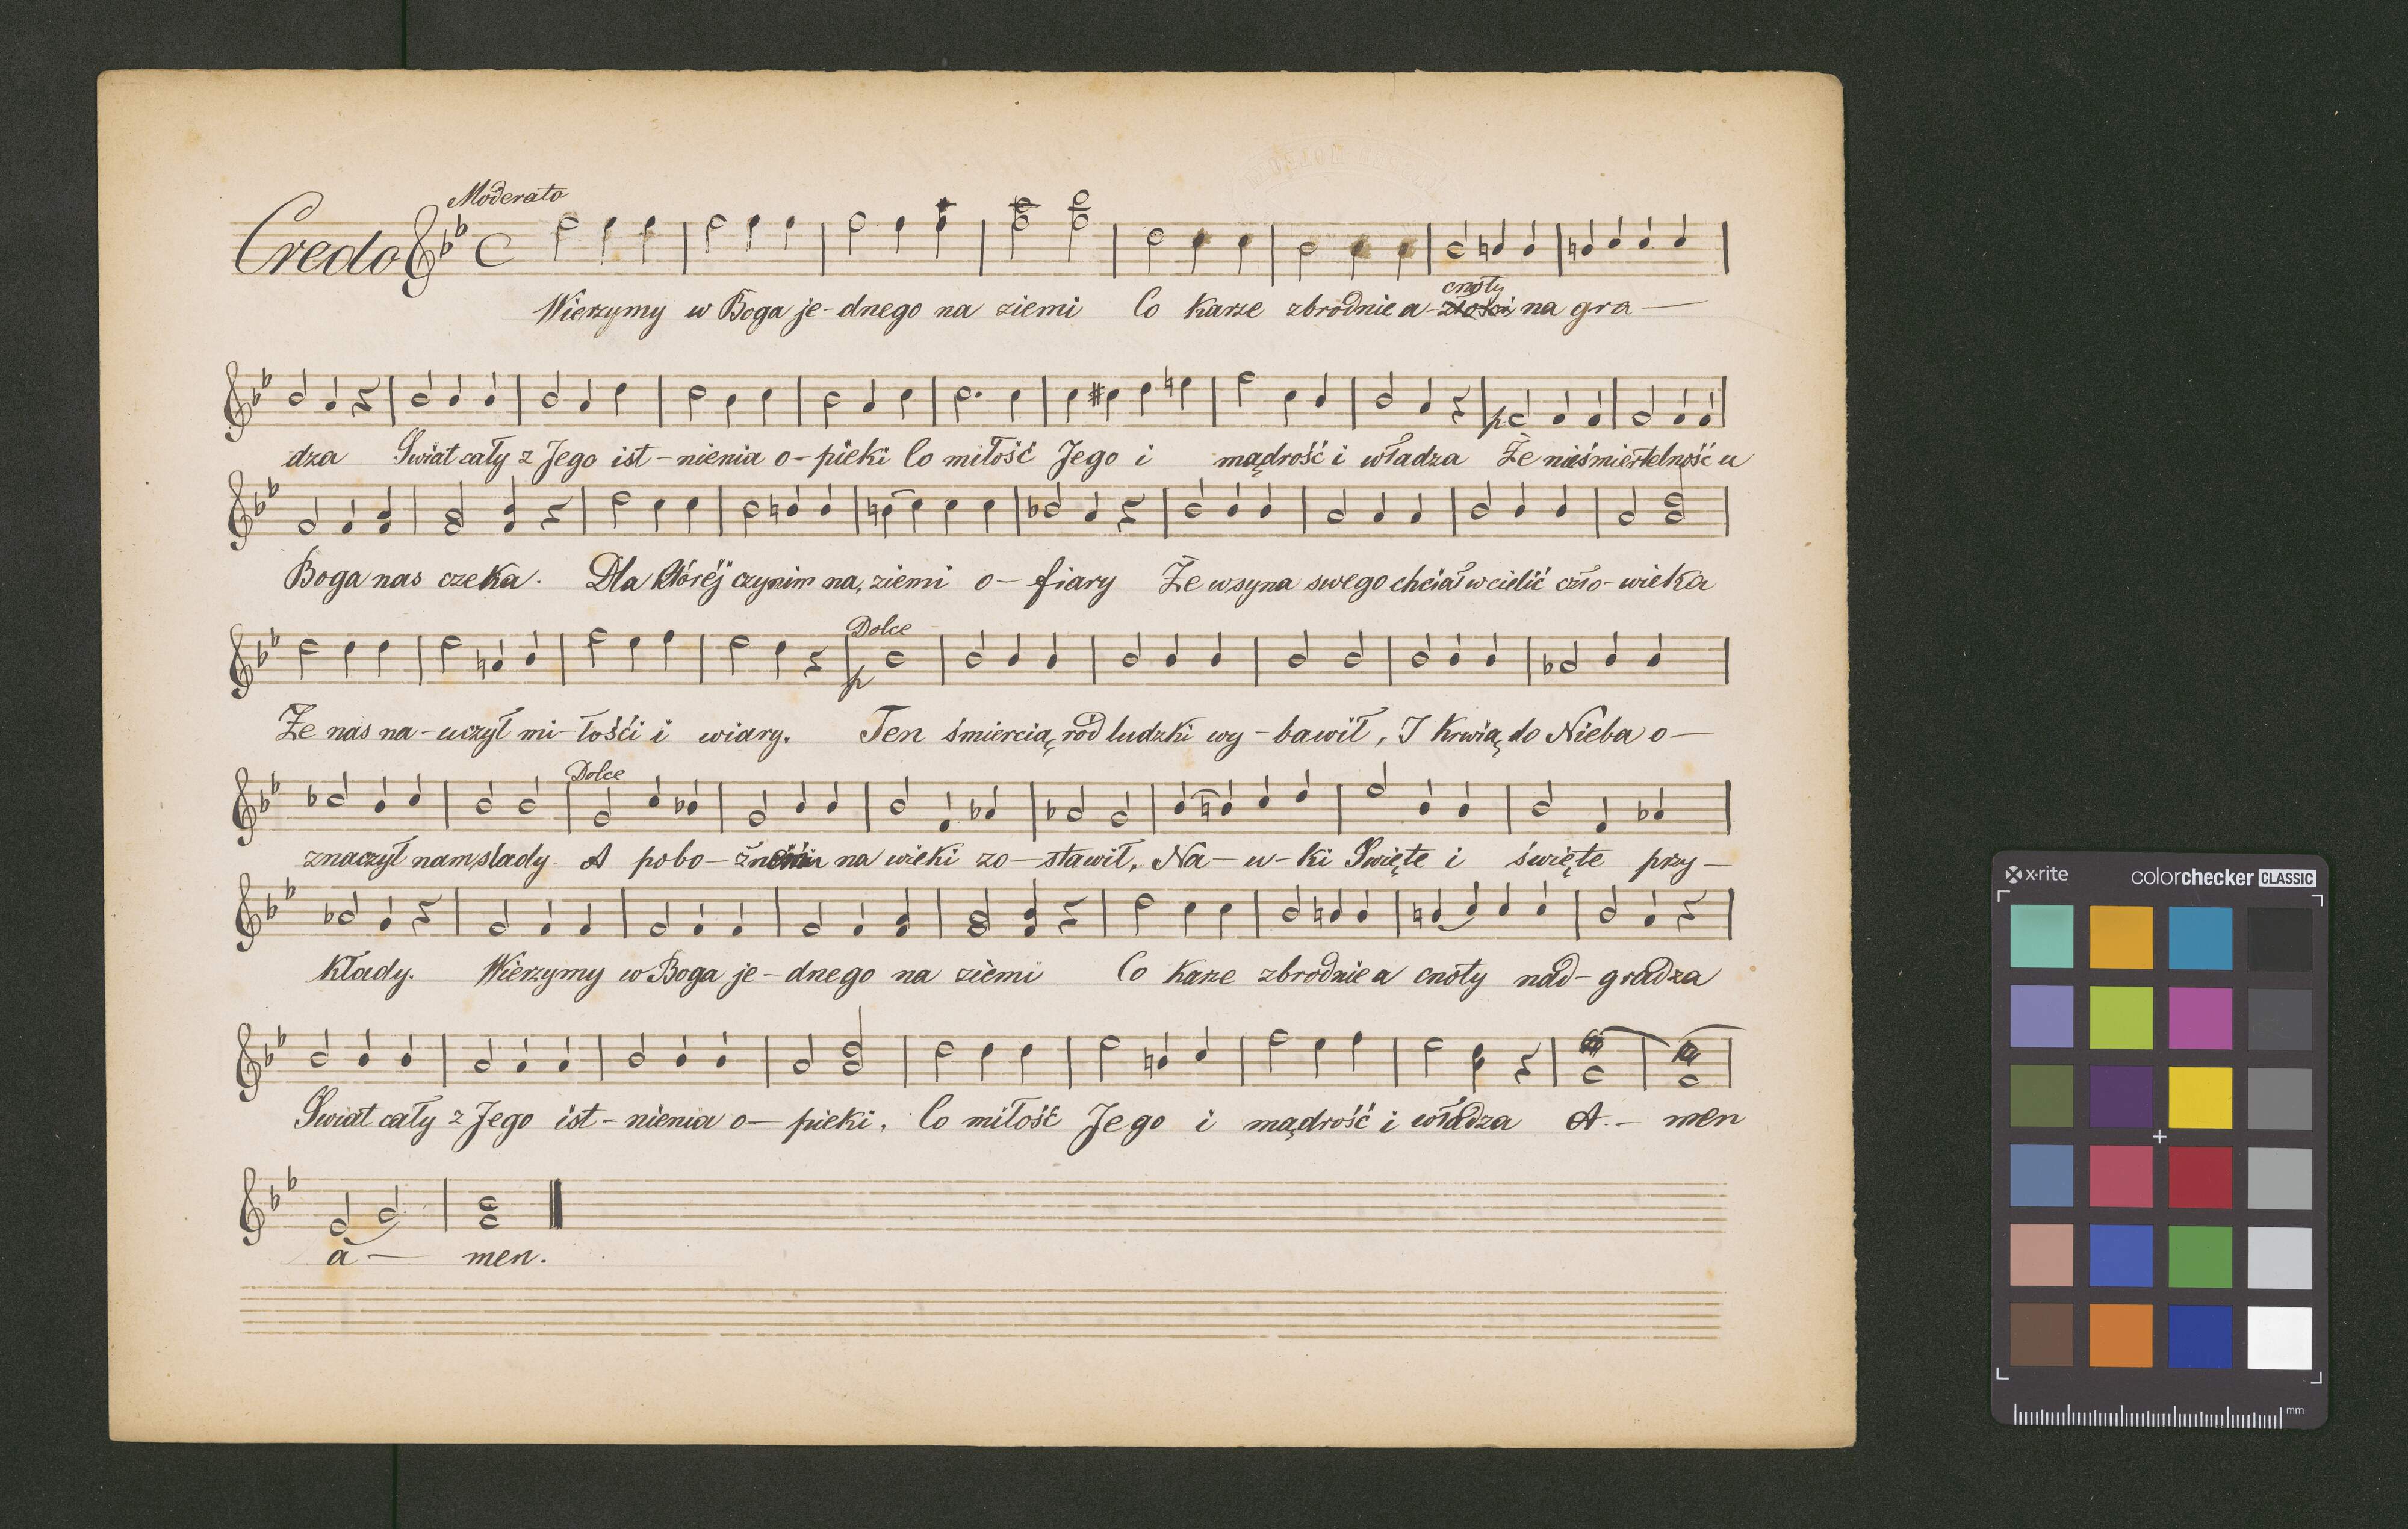 Moderato
Credo C
cnoty
Wierzymy w Boga je-dnego na ziemi Co karze zbrodnie a złości na gra—
dza Swiat cały z Jego ist-nienia o-pieki Co miłość Jego i mądrość i władza Że nieśmiertelność u
p
Boga nas czeka. Dla któréj czynim na, ziemi o-fiary Że w syna swego chciał wcielić czło-wieka
Dolce
p
Że nas na-uczył mi-łośći i wiary. Ten śmiercią ród ludzki wy-bawił, I krwią do Nieba o—
Dolce
znaczył nam slady. A pobo- na wieki zo-stawił, Na-u-ki Swięte i święte przy—
kłady. Wierzymy w Boga je-dnego na ziemi Co karze zbrodnie a cnoty nad-gradza
Swiat cały z Jego ist-nienia o-pieki, Co miłość Jego i mądrość i władza A.- men
a- men.
x-rite colorchecker CLASSIC
mm